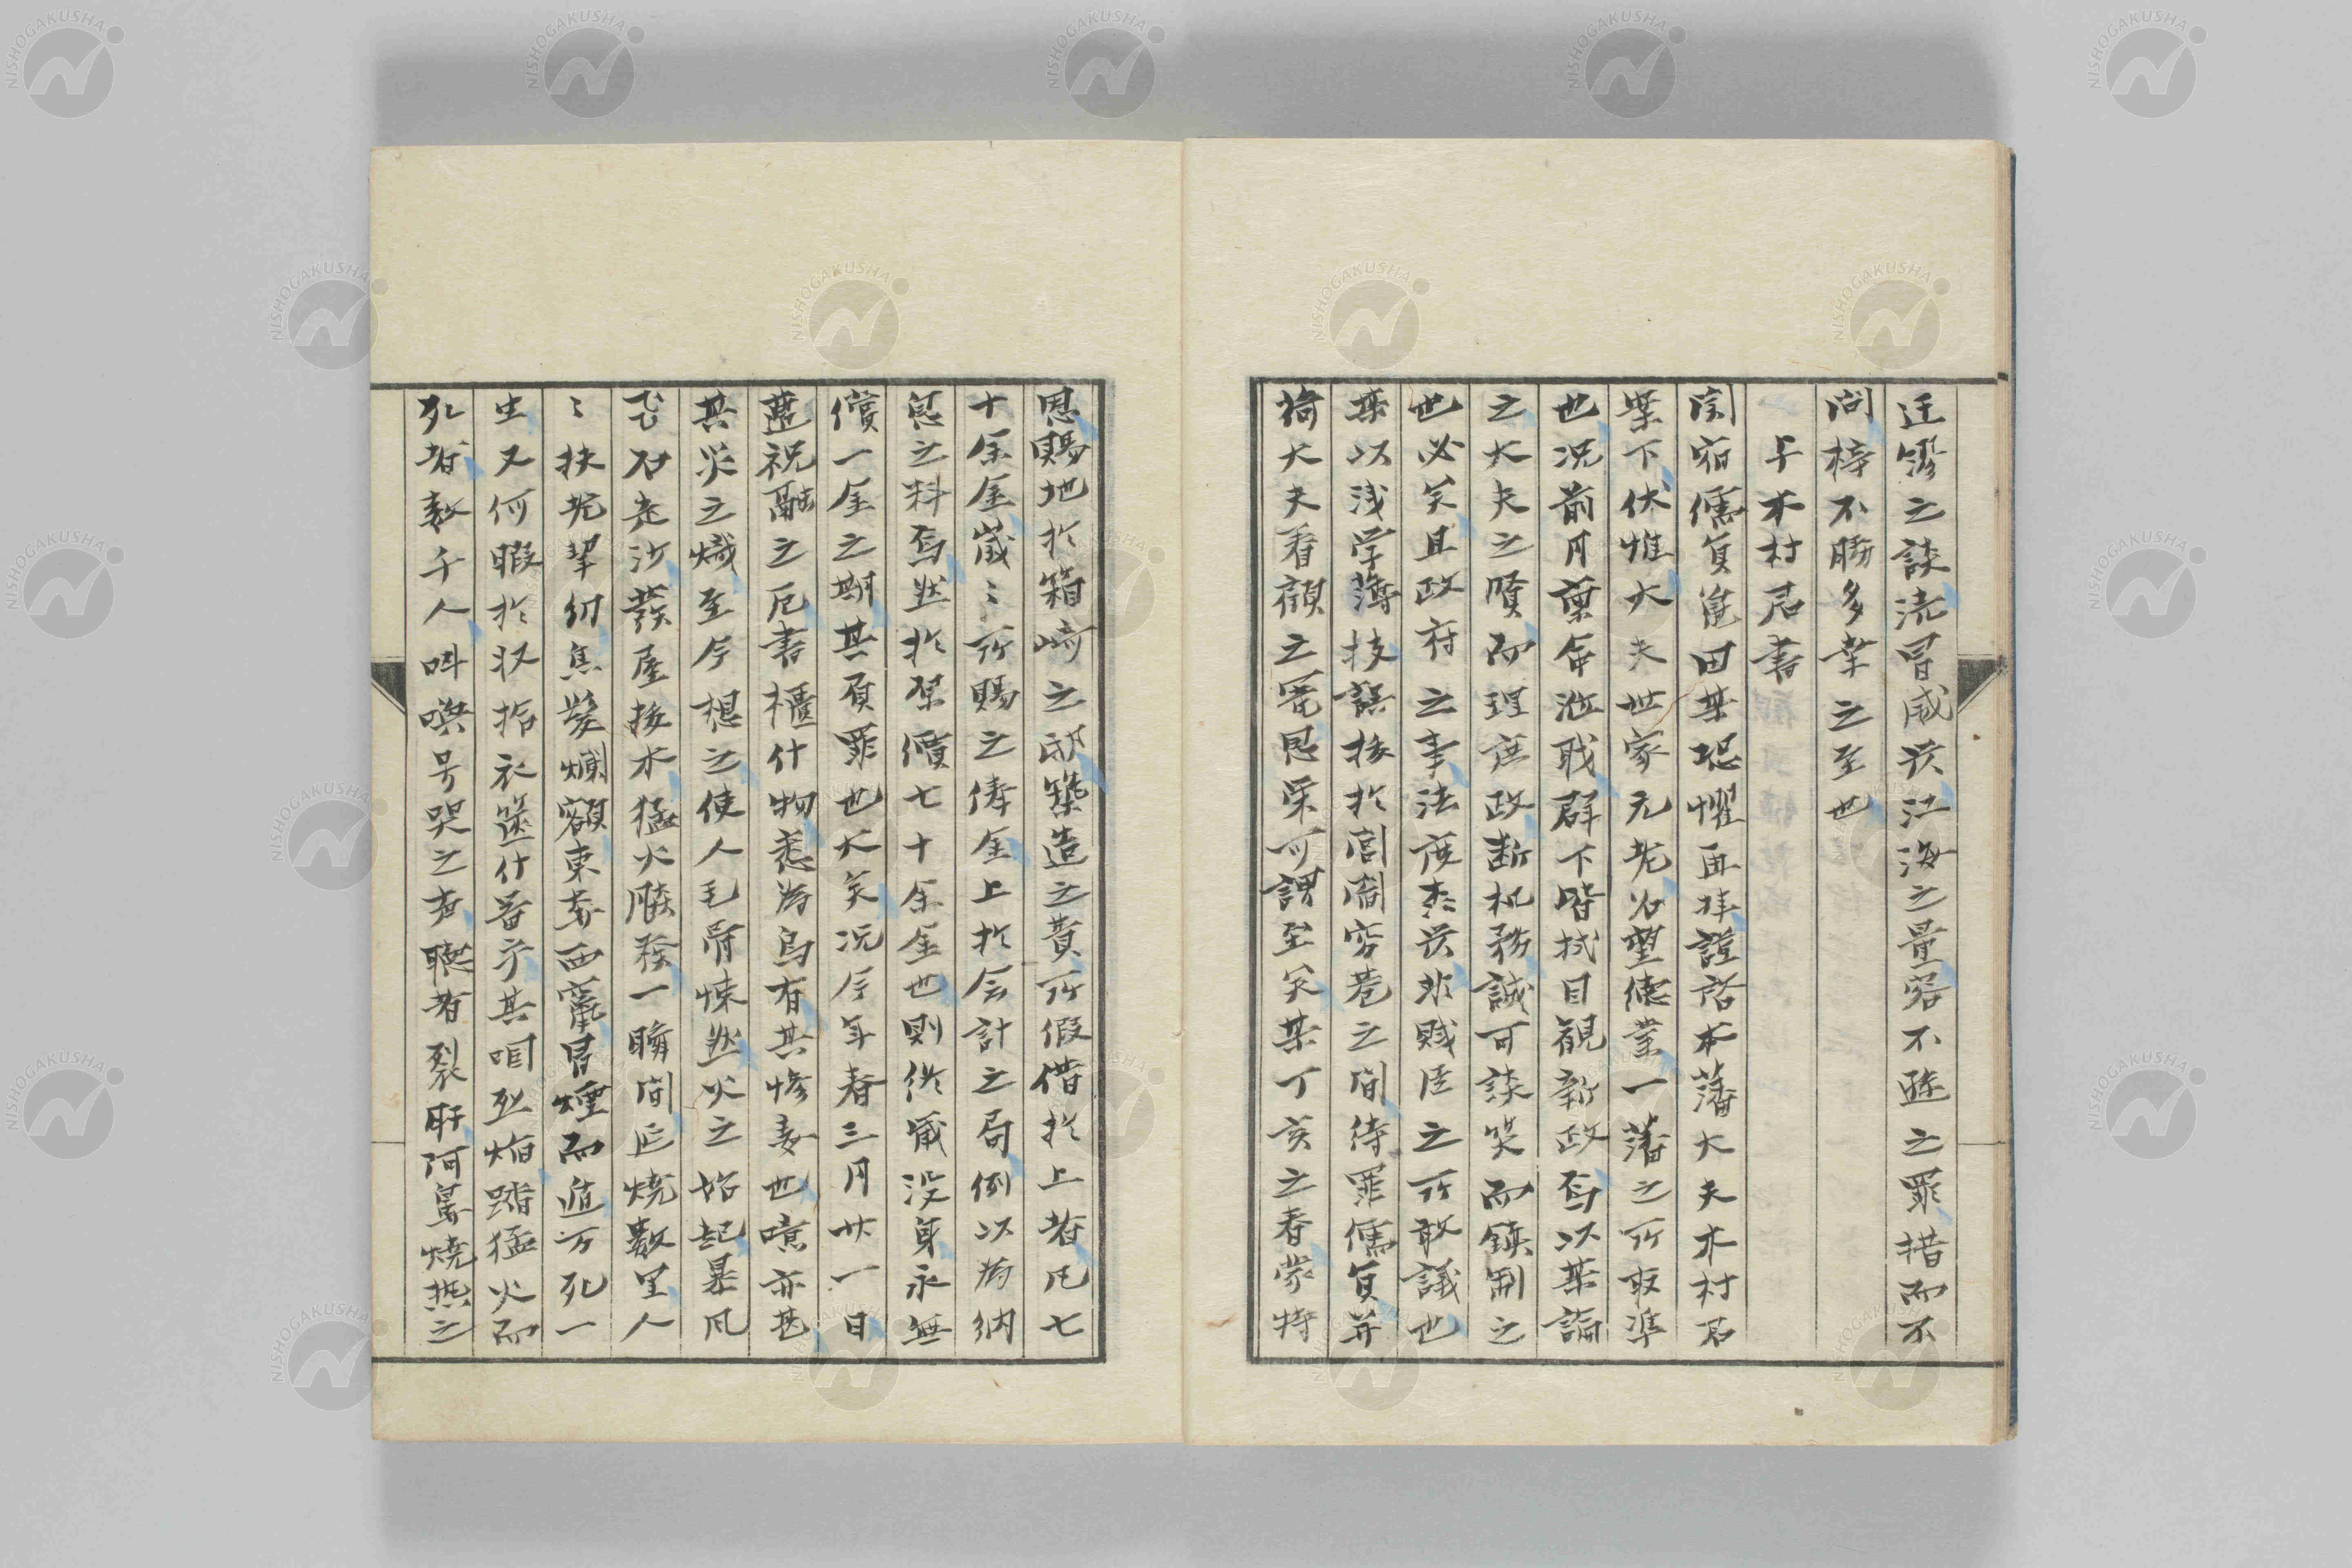 迂繆之談涜冒威厳江海之量容不遜之罪措而不
問得不勝多幸之至也
与木村君書
閑宿儒員亀田某恐懼再拝謹啓本藩大夫木村君
案下伏惟大夫世家元老名望徳業一藩之所取準
也況前月稟命涖職群下皆拭目観新政焉以某論
之大夫之賢而理庶政断机務誠可談笑而鎮制之
也必矣且政府之事法度森厳非賎臣之所敢議也
某以浅学薄技誤掾於閭閻窮巷之間待罪儒員并
荷大夫看顧之寵恩栄可謂至矣某丁亥之春蒙特
恩賜地於箱崎之邸築造之費所假借於上者凡七
十余金歳〻所賜之俸金上於会計之局例以為納
息之料焉然於原償七十余金也則終歳没身永無
償一金之期其負罪也大矣況今年春三月廿一日
遭祝融之厄書櫃什物悉為烏有其惨毒也噫亦甚
其災之熾至今想之使人毛骨悚然火之始起暴風
飛石走沙發屋拔木猛火驣發一瞬間延焼數里人
〻扶老挈幼焦髮爛額東奔西竄冒煙而遁万死一
生又何暇於収拾衣篋什器乎其咽烈焔踏猛火而
死者數千人叫喚号哭之声聴者裂肝阿鼻焼熱之